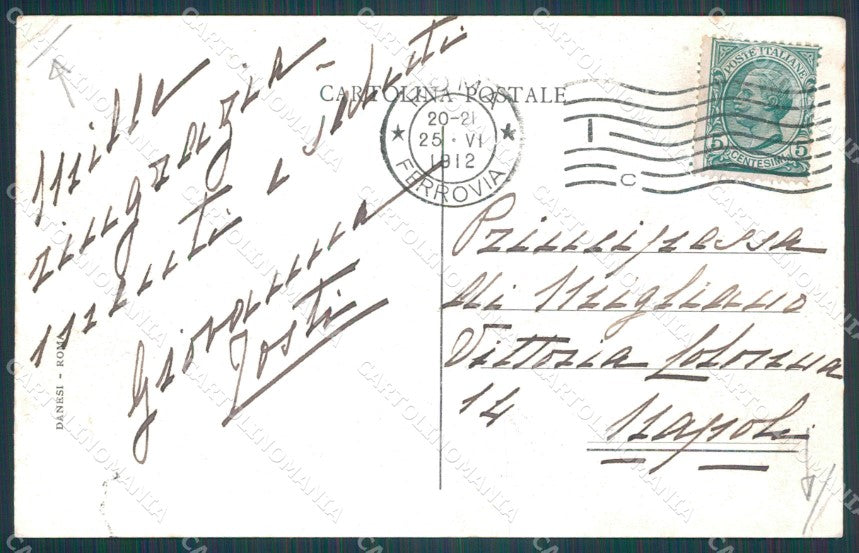 Mille
ringrazia-
menti e saluti
Giovanna
Tosti
DANESI - ROMA
CARTOLINA POSTALE
ROMA
20-21
25 · VI
1912
FERROVIA
I
C
POSTE ITALIANE
5 5
CENTESIMI
Principessa
di Migliano
Vittoria Colonna
14
Napoli
CARTOLINOMANIA